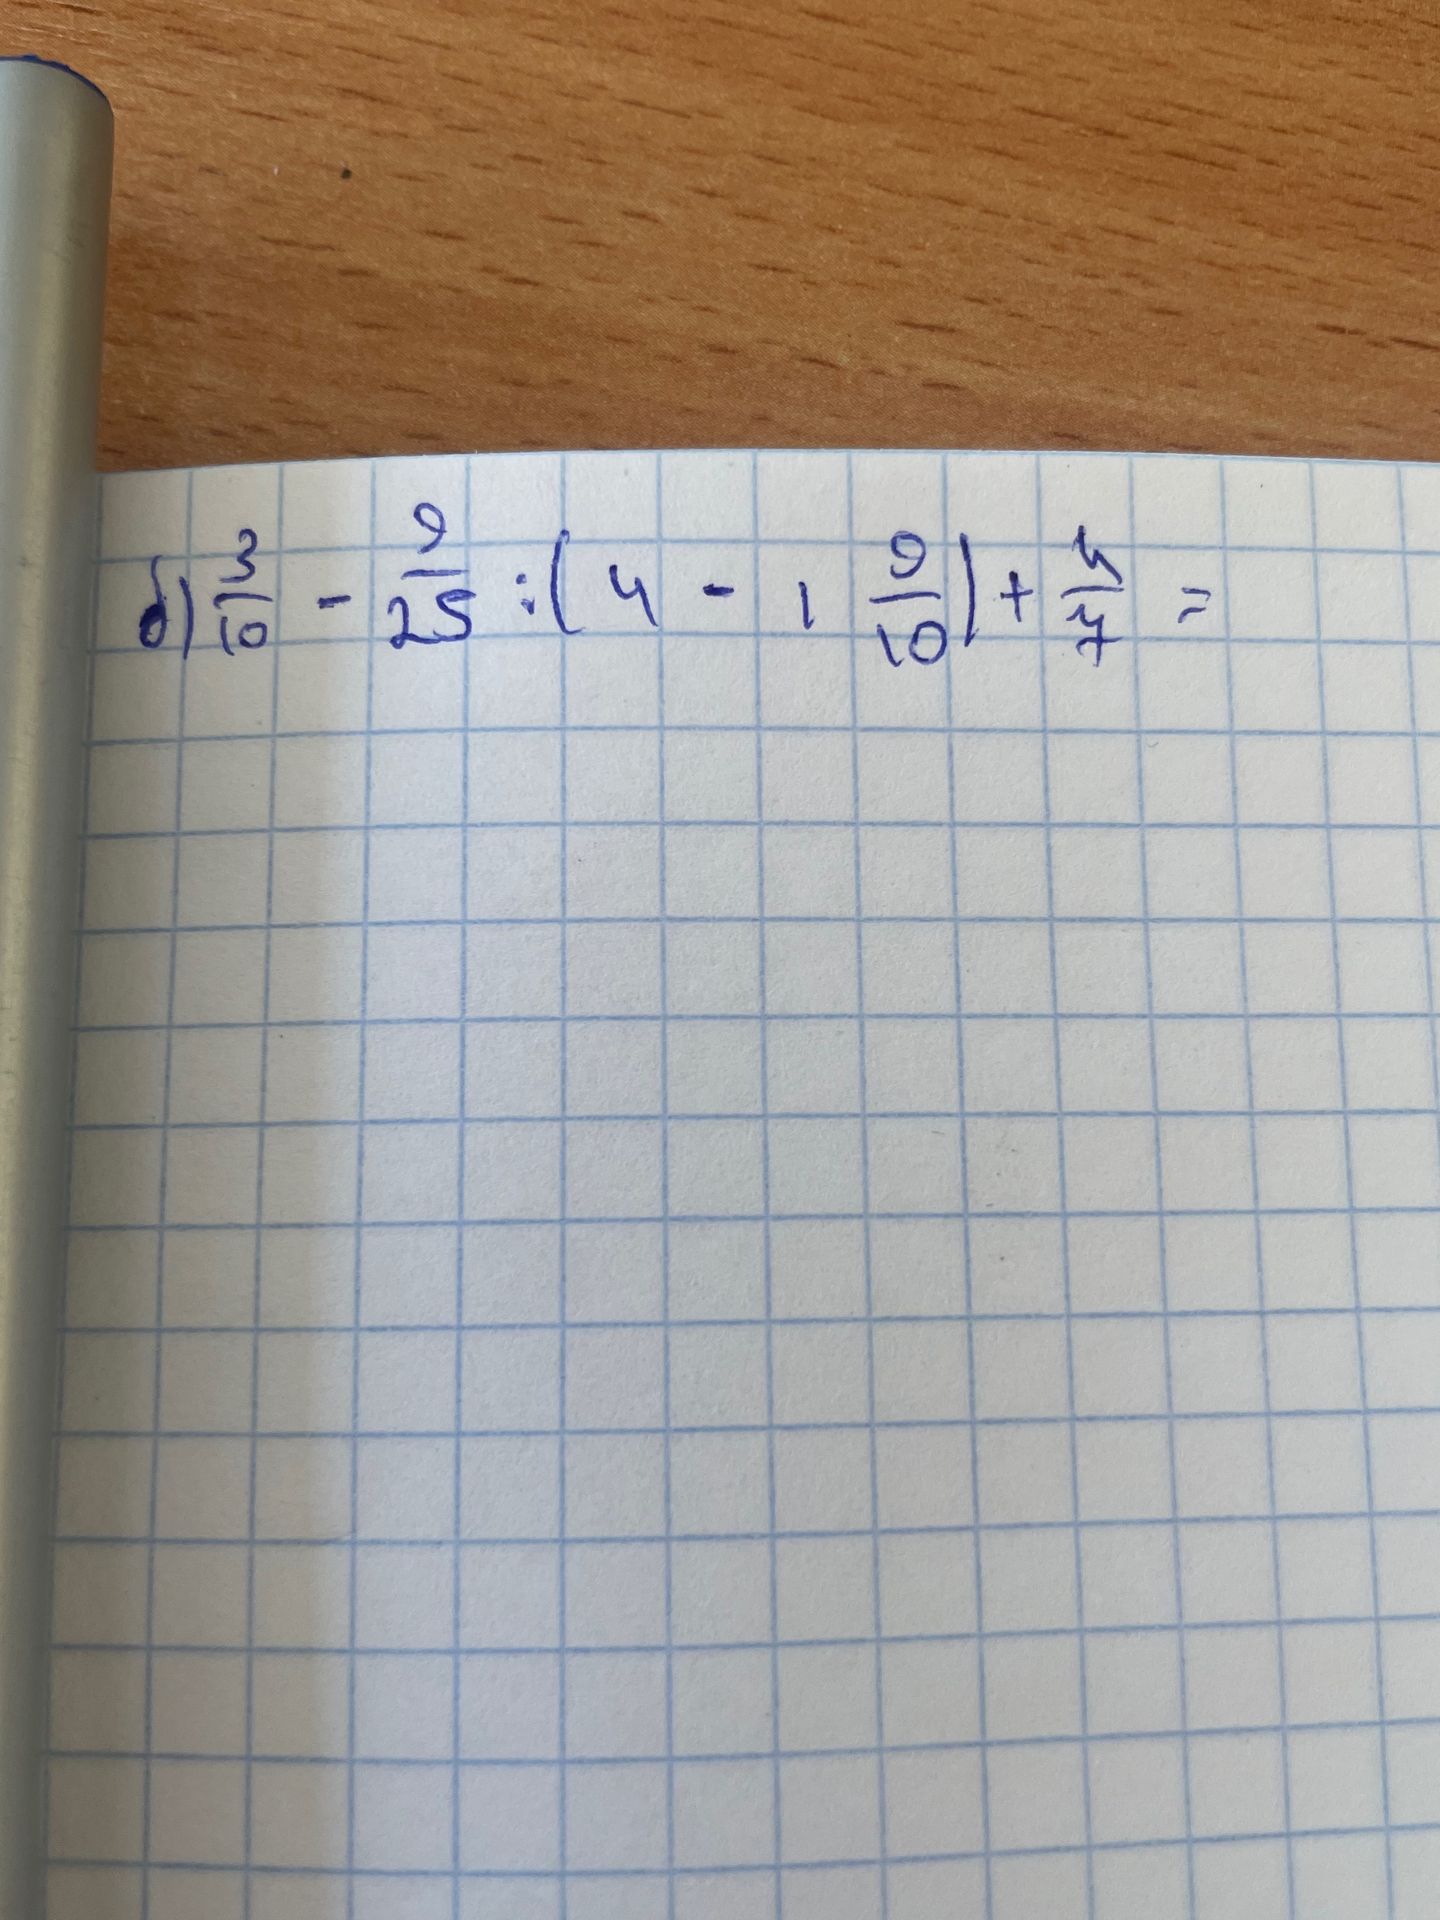 б) 3/10 - 9/25 : (4 - 1 9/10) + 4/7 =